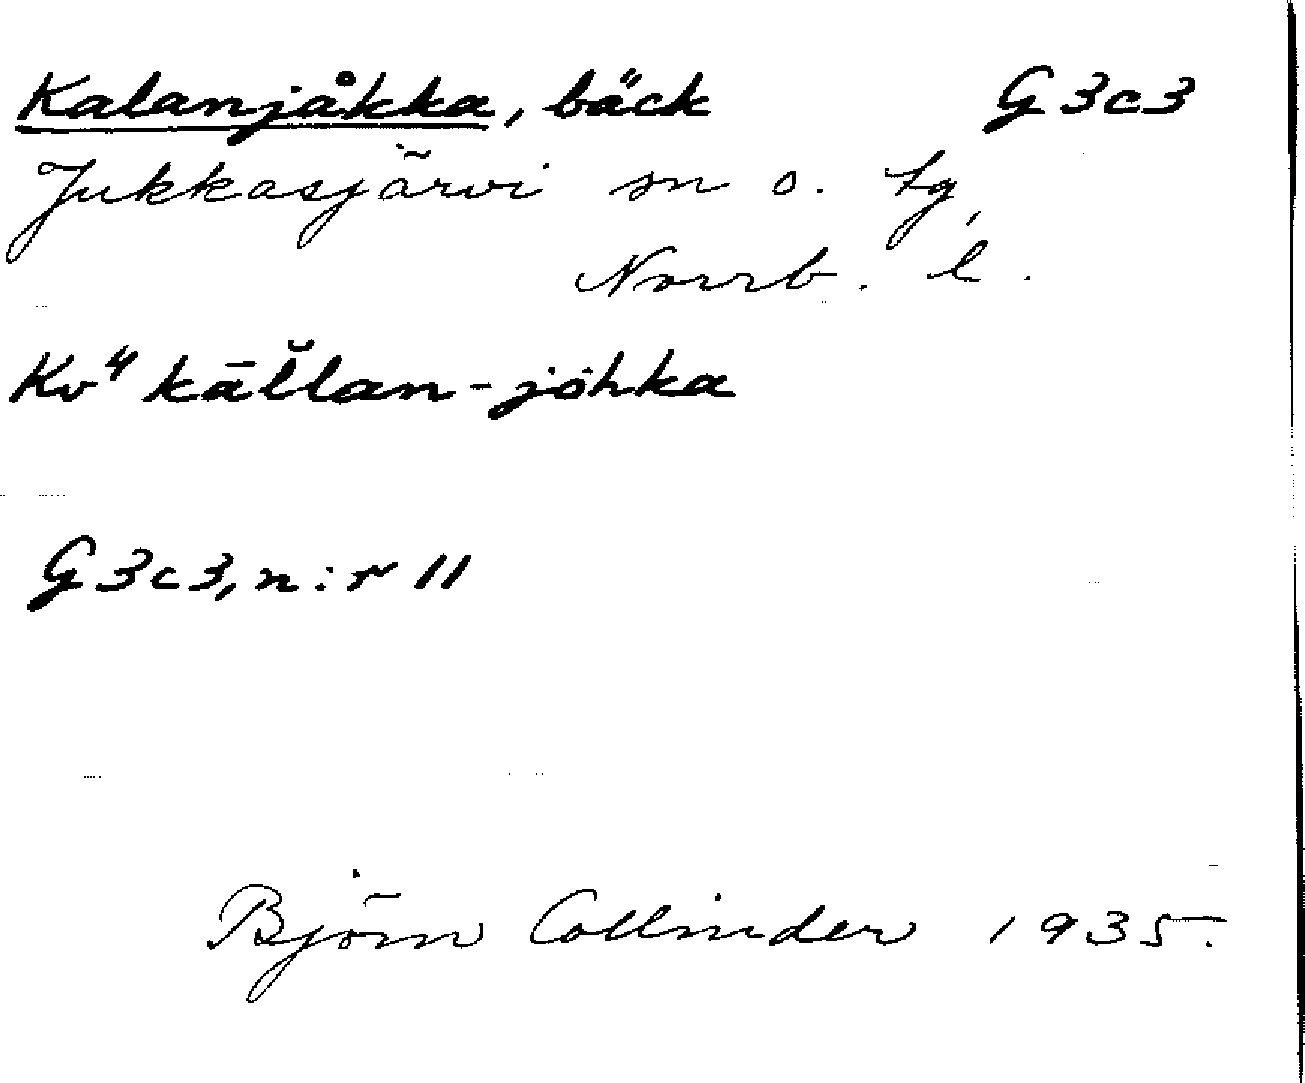 Kalanjåkka, bäck G3c3
Jukkasjärvi sn o. tg,
Norrb. l.
Kv" kāl̆lan-jȯhka
G3c3, n:r 11
Björn Collinder 1935.